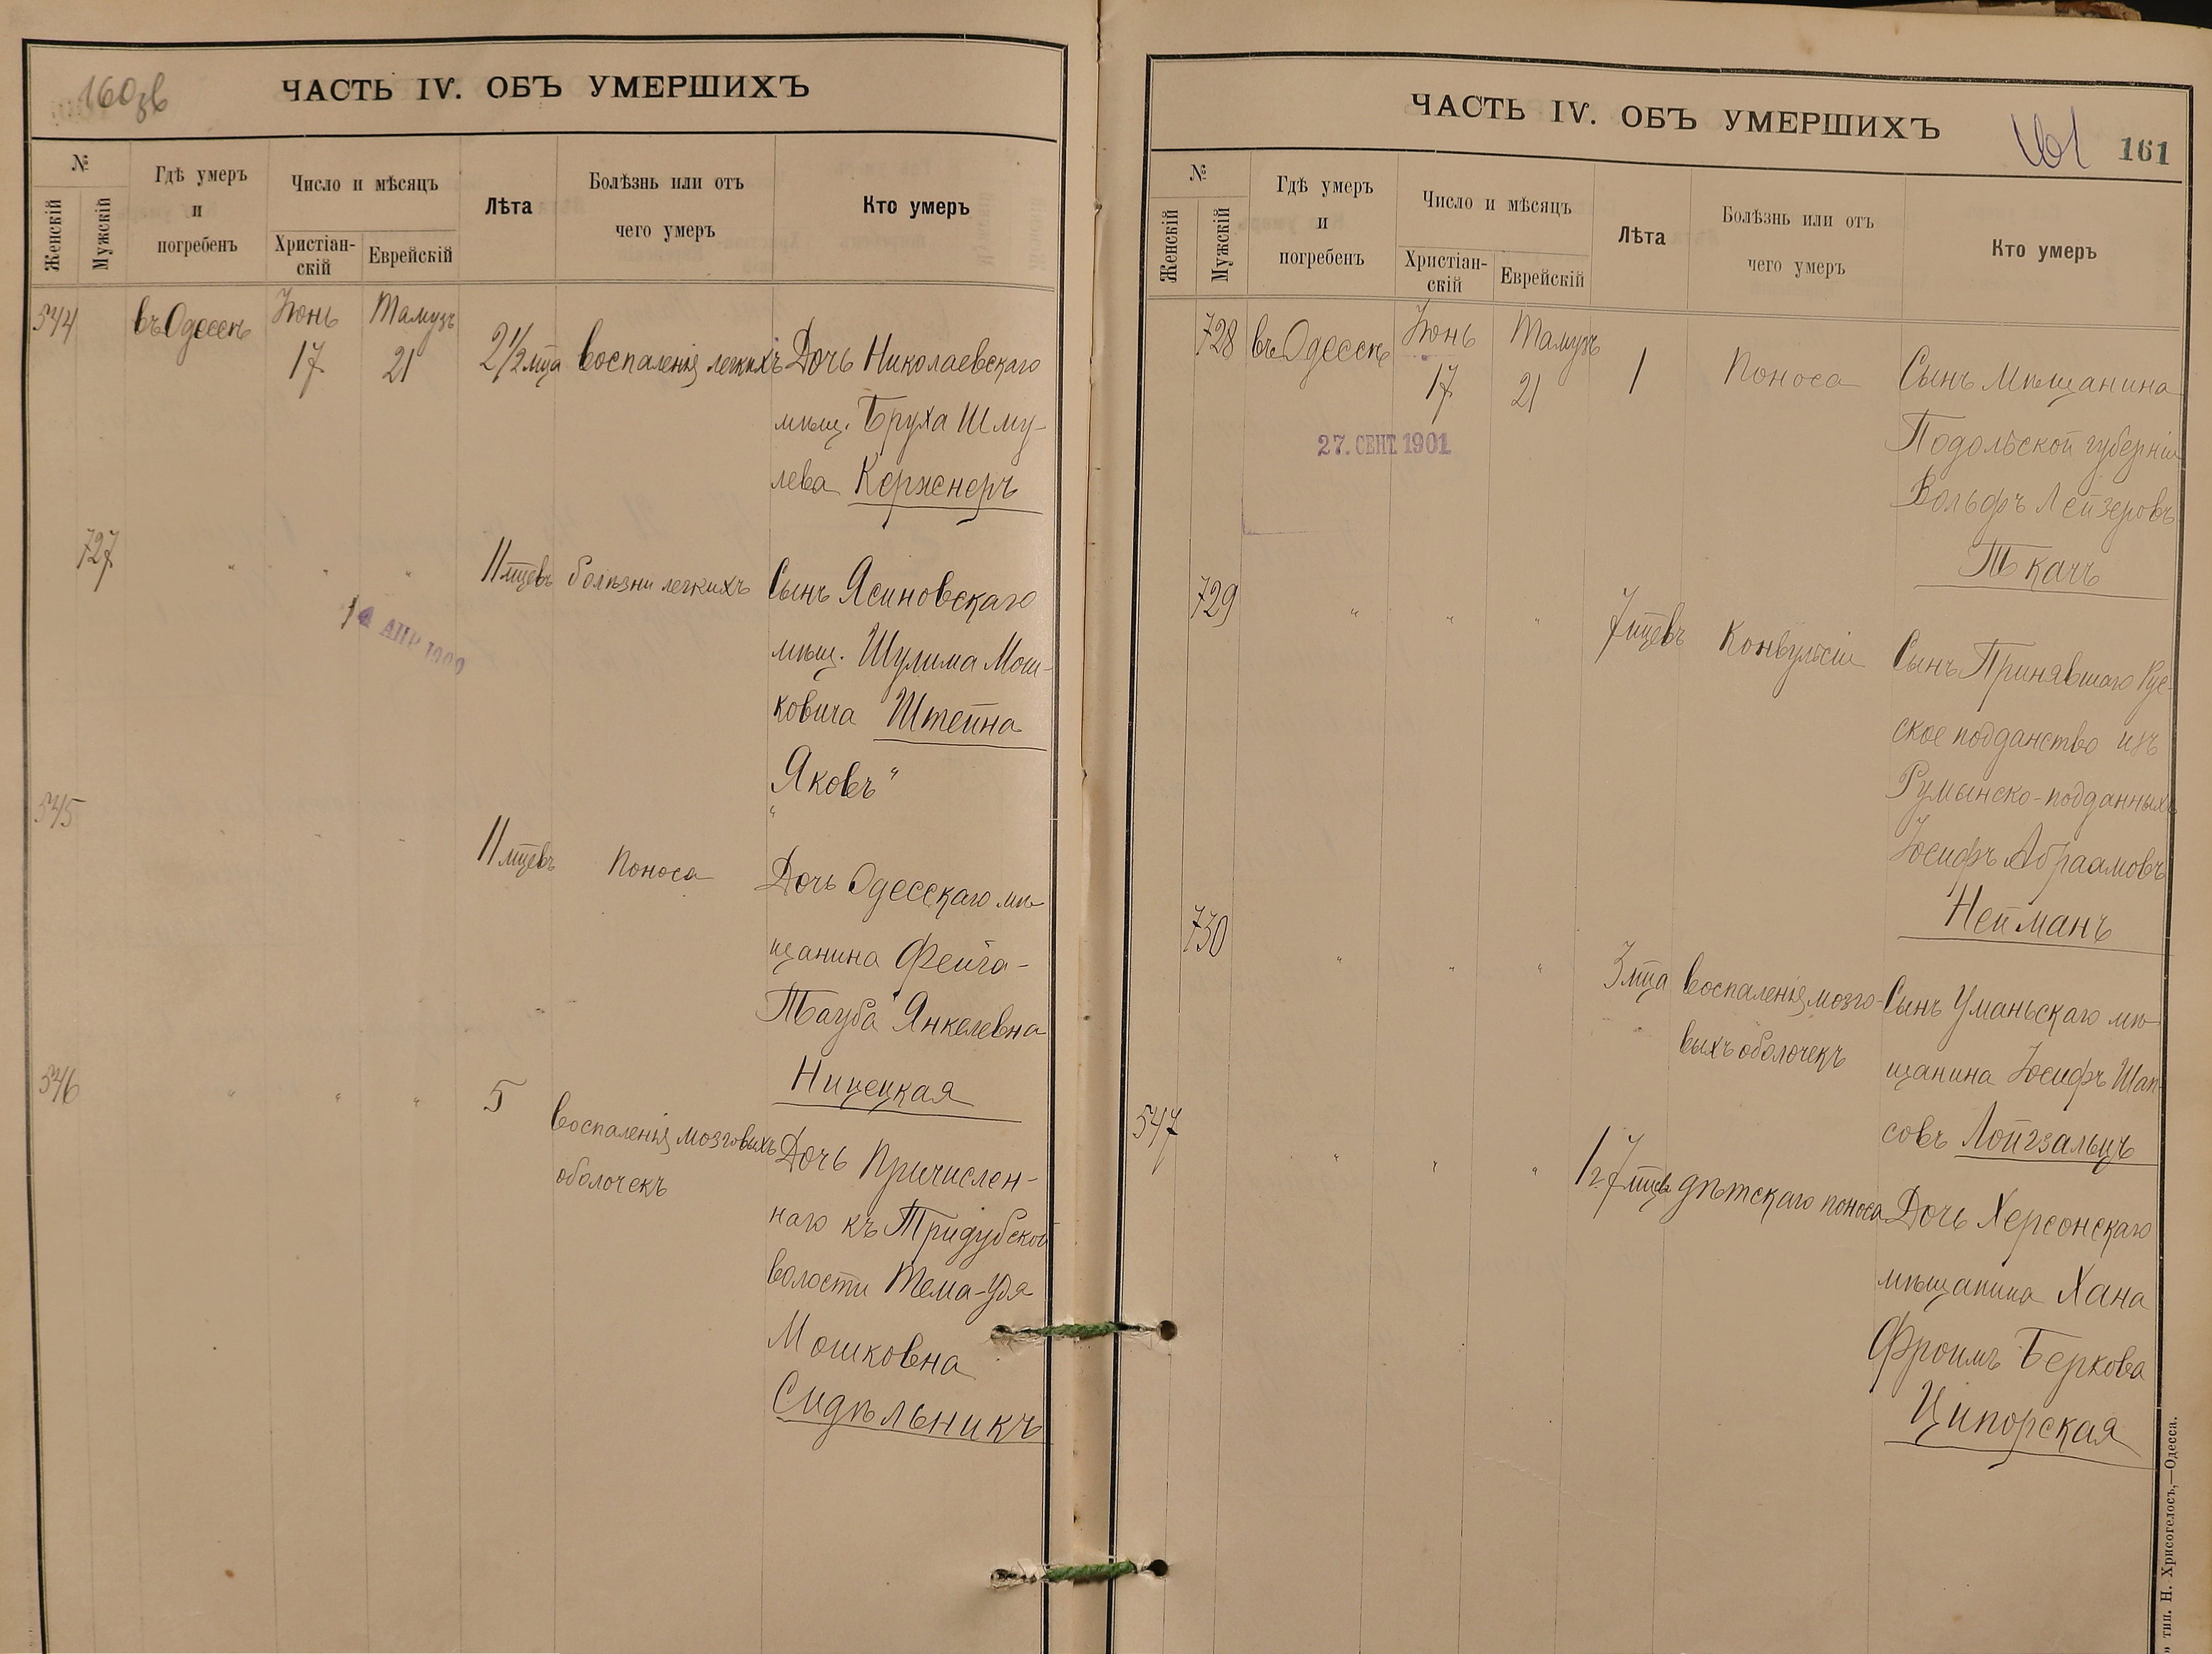 160зв
ЧАСТЬ IV. ОБЪ УМЕРШИХЪ
№
Женскій
Мужскій
Гдѣ умеръ
и
погребенъ
Число и мѣсяцъ
Христіан-
скій
Еврейскій
Лѣта
Болѣзнь или отъ
чего умеръ
Кто умеръ
544 въ Одессѣ Іюнь Тамузъ
17 21 2 1/2 мца воспаленія легкихъ Дочь Николаевскаго
мѣщ. Бруха Шму-
лева Коржнеръ
727 " " " 11 мцевъ болѣзни легкихъ Сынъ Ясиновскаго
АПР 1909
мѣщ. Шулима Мош-
ковича Штейна
"Яковъ"
545 11 мцевъ Поноса Дочь Одесскаго мѣ-
щанина Фейга-
Тауба Янкелевна
Ницецкая
546 " " " 5 воспаленія мозговыхъ Дочь Причислен-
оболочекъ
наго къ Тридубской
волости Тема-Удя
Мошковна
Сидѣльникъ
ЧАСТЬ IV. ОБЪ УМЕРШИХЪ
161 161
№
Женскій
Мужскій
Гдѣ умеръ
и
погребенъ
Число и мѣсяцъ
Христіан-
скій
Еврейскій
Лѣта
Болѣзнь или отъ
чего умеръ
Кто умеръ
728 въ Одессѣ Іюнь Тамузъ
17 21 1 Поноса Сынъ Мѣщанина
27. СЕНТ 1901
Подольской губерніи
Вольфъ Лейзеровъ
Ткачъ
729 " " " 7 мцевъ Конвульсіи Сынъ Принявшаго Рус-
ское подданство изъ
Румынско-подданныхъ
Іосифъ Абраамовъ
Нейманъ
730 " " " 3 мца воспаленія мозго- Сынъ Уманьскаго мѣ-
выхъ оболочекъ
щанина Іосифъ Шап-
совъ Лойгзальцъ
547 " " " 1 г. 7 мцевъ дѣтскаго поноса Дочь Херсонскаго
мѣщанина Хана
Фроимъ Беркова
Ципорская
тип. Н. Хрисогелосъ,—Одесса.